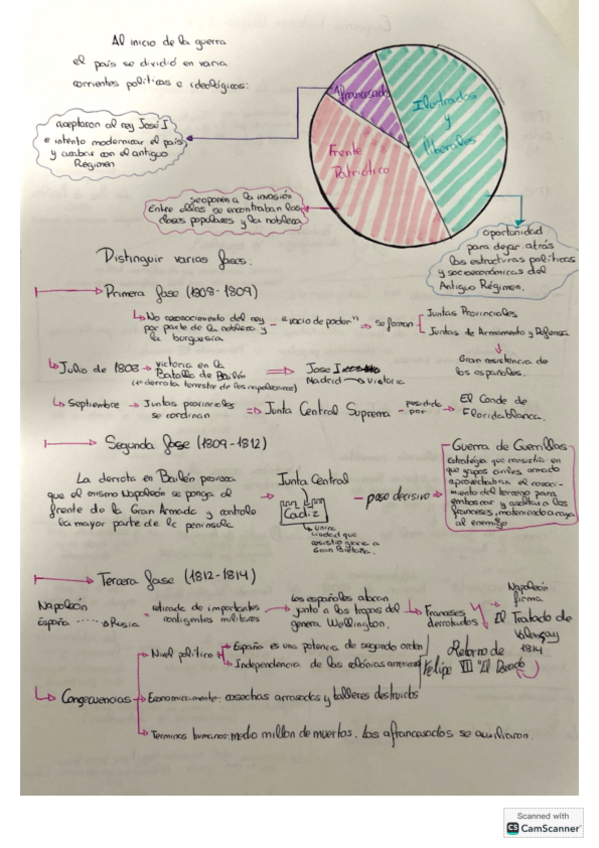 Al inicio de la guerra
el país se dividió en varia
corrientes políticas e ideológicas:
Afrancesados
Ilustrados
y
liberales
Frente
Patriótico
aceptaron al rey José I
e intento modernizar el país
y acabar con el antiguo
Régimen
se oponen a la invasión
Entre ellas se encontraban las
clases populares y la nobleza
oportunidad
para dejar atrás
las estructuras políticas
y socioeconómicas del
Antiguo Régimen.
Distinguir varias fases:
Primera fase (1808-1809)
No reconocimiento del rey
por parte de la nobleza y
la burguesía
"vacio de poder"
se forman
Juntas Provinciales
Juntas de Armamento y Defensa
Gran resistencia de
los españoles.
Julio de 1808
victoria en la
Batalla de Bailén
(1ª derrota terrestre de los napoleónicos)
Jose I
Madrid → Victoria
Septiembre → Juntas provinciales
se cordinan
Junta Central Suprema
presidida
por
El Conde de
Floridablanca.
Segunda fase (1809-1812)
La derrota en Bailén provoca
que el mismo Napoleón se ponga al
frente de la Gran Armada y controle
la mayor parte de la península
Junta Central
Cádiz
Única
ciudad que
resistio gracias a
Gran Bretaña.
paso decisivo
Guerra de Guerrillas
Estrategia que consistía en
que grupos civiles armado
aprovechaban el conoci-
miento del terreno para
emboscar y asaltar a los
franceses,
al enemigo
Tercera fase (1812-1814)
Napoleón
España ...... Rusia
retirada de importantes
contigentes militares
Los españoles atacan
junto a las tropas del
genera Wellington.
Franceses
derrotados
Napoleón
firma
El Tratado de
Valençay
1814
Retorno de
Felipe VII "El Deseado
Consecuencias
Nivel político
España es una potencia de segundo orden
Independencia de las colonias americanas
Economicamente: cosechas arrasadas y talleres destruidos
Terminos humanos: medio millon de muertos. Los afrancesados se auxiliaron.
Scanned with
CS CamScanner